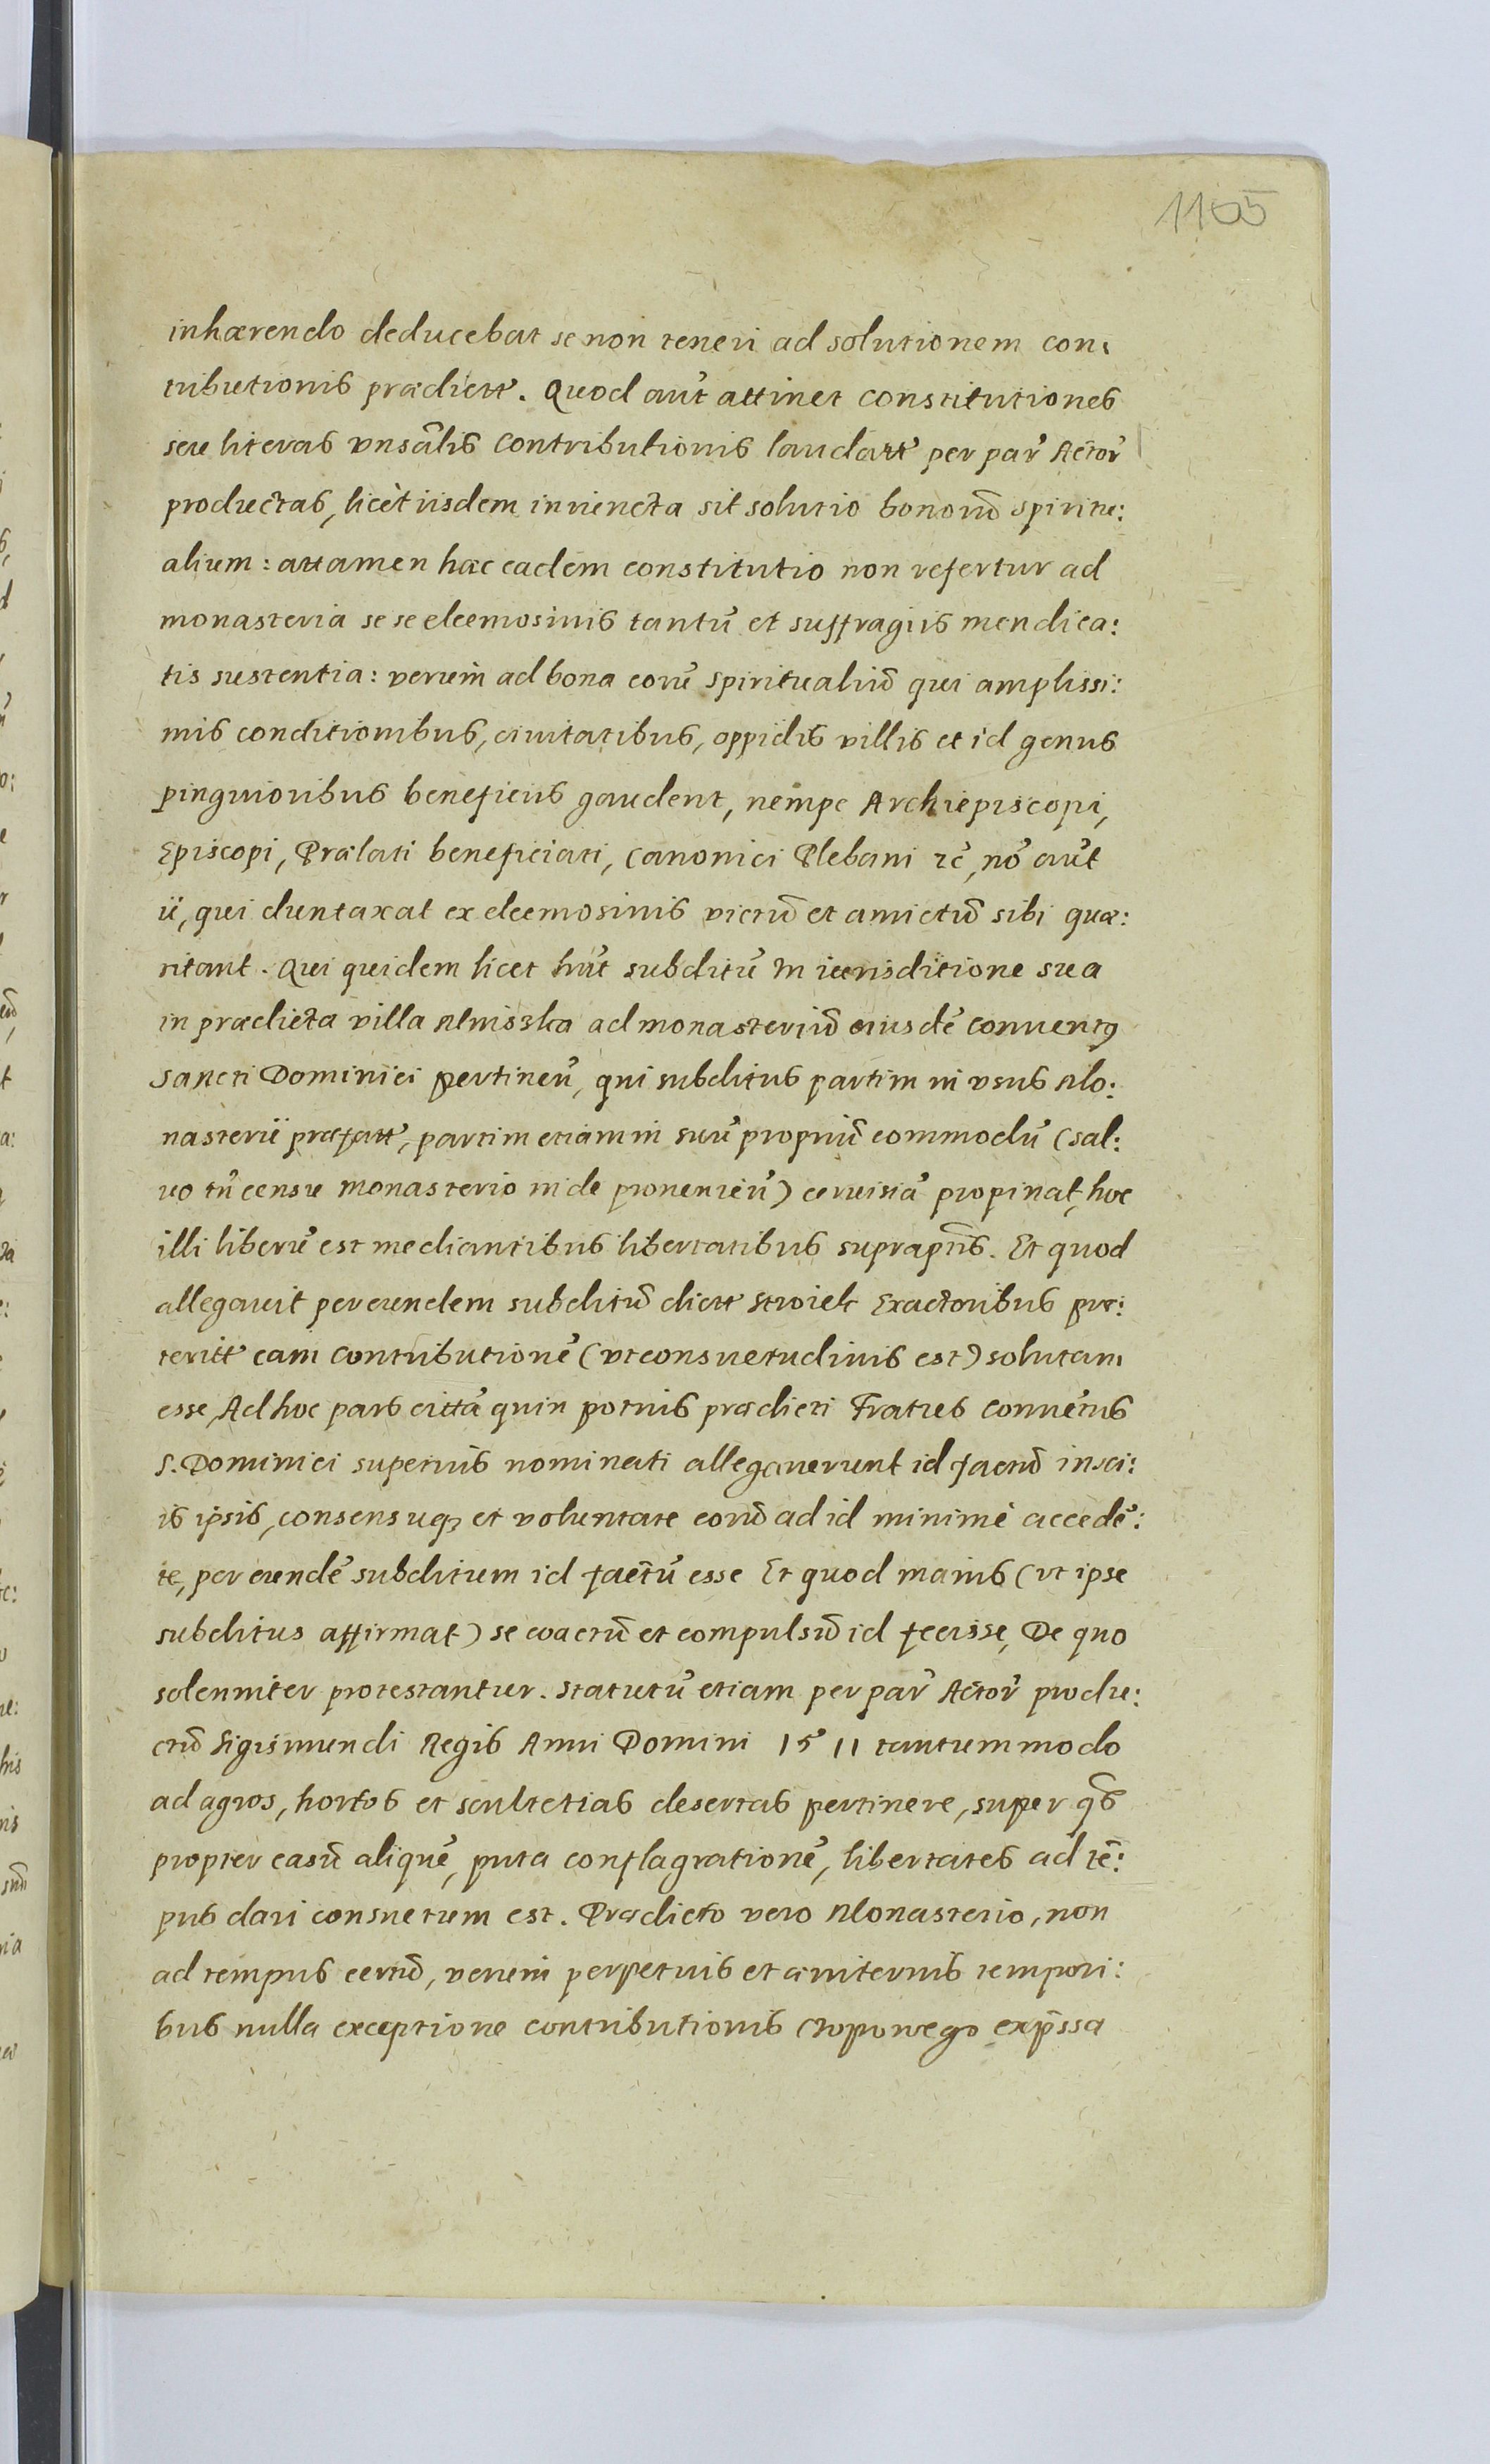 1105
inhærendo deducebat se non teneri ad solutionem con:
tributionis prædictt. Quod aut̃ attinet constitutiones
seu literas vnsãlis contributionis laudatt per par̃ Actor̃
productas, licèt iisdem inuencta sit solutio bonorũ spiritu:
alium: attamen hæc eadem constitutio non refertur ad
monasteria se se eleemosinis tantũ et suffragiis mendica:
tis sustentia: verum ad bona eorũ spiritualiũ qui amplissi:
mis conditionibus, ciuitatibus, oppidis villis et id genus
pinguioribus beneficiis gaudent, nempe Archiepiscopi,
Episcopi, Prælati beneficiati, Canonici Plebani etc̃, nõ aut̃
ii, qui duntaxat ex eleemosinis victũ et amictũ sibi quæ:
ritant. Qui quidem licet hñt subditũ in iurisditione sua
in prædicta villa Mniszka ad monasteriũ eiusdẽ conuentus
Sancti Dominici pertineñ, qui subditus partim in vsus Mo:
nasterii præfatt, partim etiam in suũ propriũ commodũ (sal:
uo tñ censu monasterio inde prouenieñ) ceruisiã propinat, hoc
illi liberũ est mediantibus libertatibus suprapñs. Et quod
allegauit per eundem subditũ dictt Stroick Exactoribus præ:
teritt eam contributionẽ (vt consuetudinis est) solutam
esse, Ad hoc pars cittã quin potius prædicti Fratres conuẽtus
S. Dominici superius nominati allegauerunt id factũ insci:
is ipsis, consensuq3 et voluntate eorũ ad id minimè accedẽ:
te, per eundẽ subditum id factũ esse Et quod maius (vt ipse
subditus affirmat) se coactũ et compulsũ id fecisse, De quo
solenniter protestantur. Statutũ etiam per par̃ Actor̃ produ:
ctũ Sigismundi Regis Anni Domini 1511 tantummodo
ad agros, hortos et scultetias desertas pertinere, super q̃s
propter casũ aliquẽ, puta conflagrationẽ, libertates ad tẽ:
pus dari consuetum est. Prædicto vero Monasterio, non
ad tempus certũ, verum perpetuis et æuiternis tempori:
bus nulla exceptione contributionis czopowego exp̃ssa